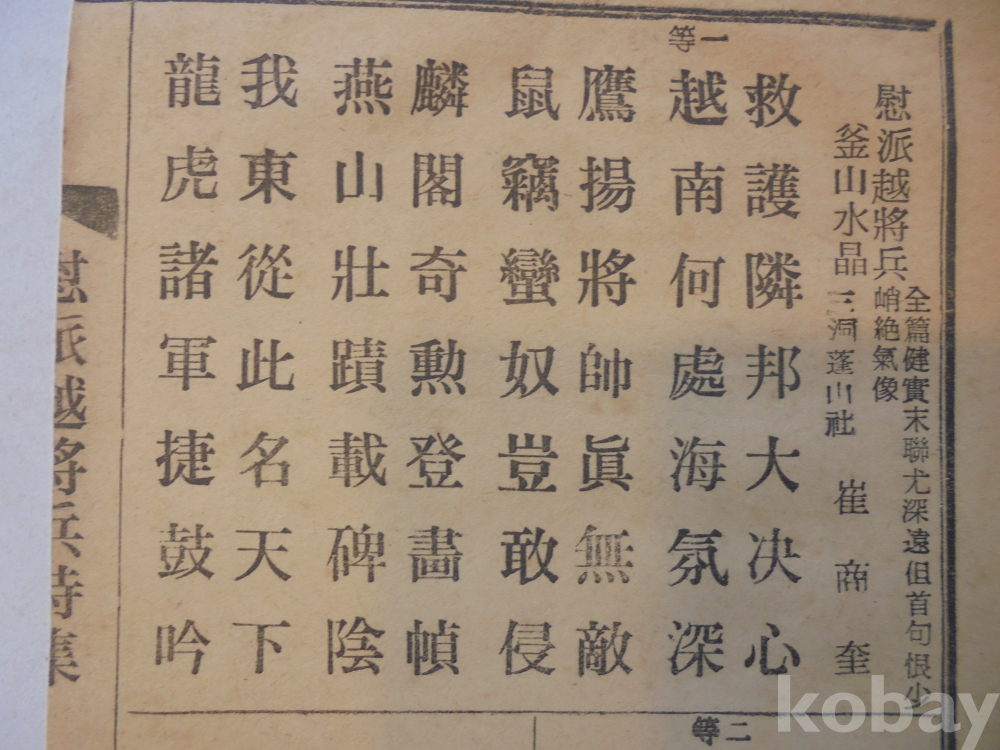 慰派越將兵 全篇健實末聯尤深遠但首句恨少
峭絶氣像
釜山水晶三洞蓬山社 崔商奎
一等
救護隣邦大决心
越南何處海氛深
鷹揚將帥眞無敵
鼠竊蠻奴豈敢侵
麟閣奇勳登畵幀
燕山壯蹟載碑陰
我東從此名天下
龍虎諸軍捷鼓吟
慰派越將兵詩集
二等
kobay